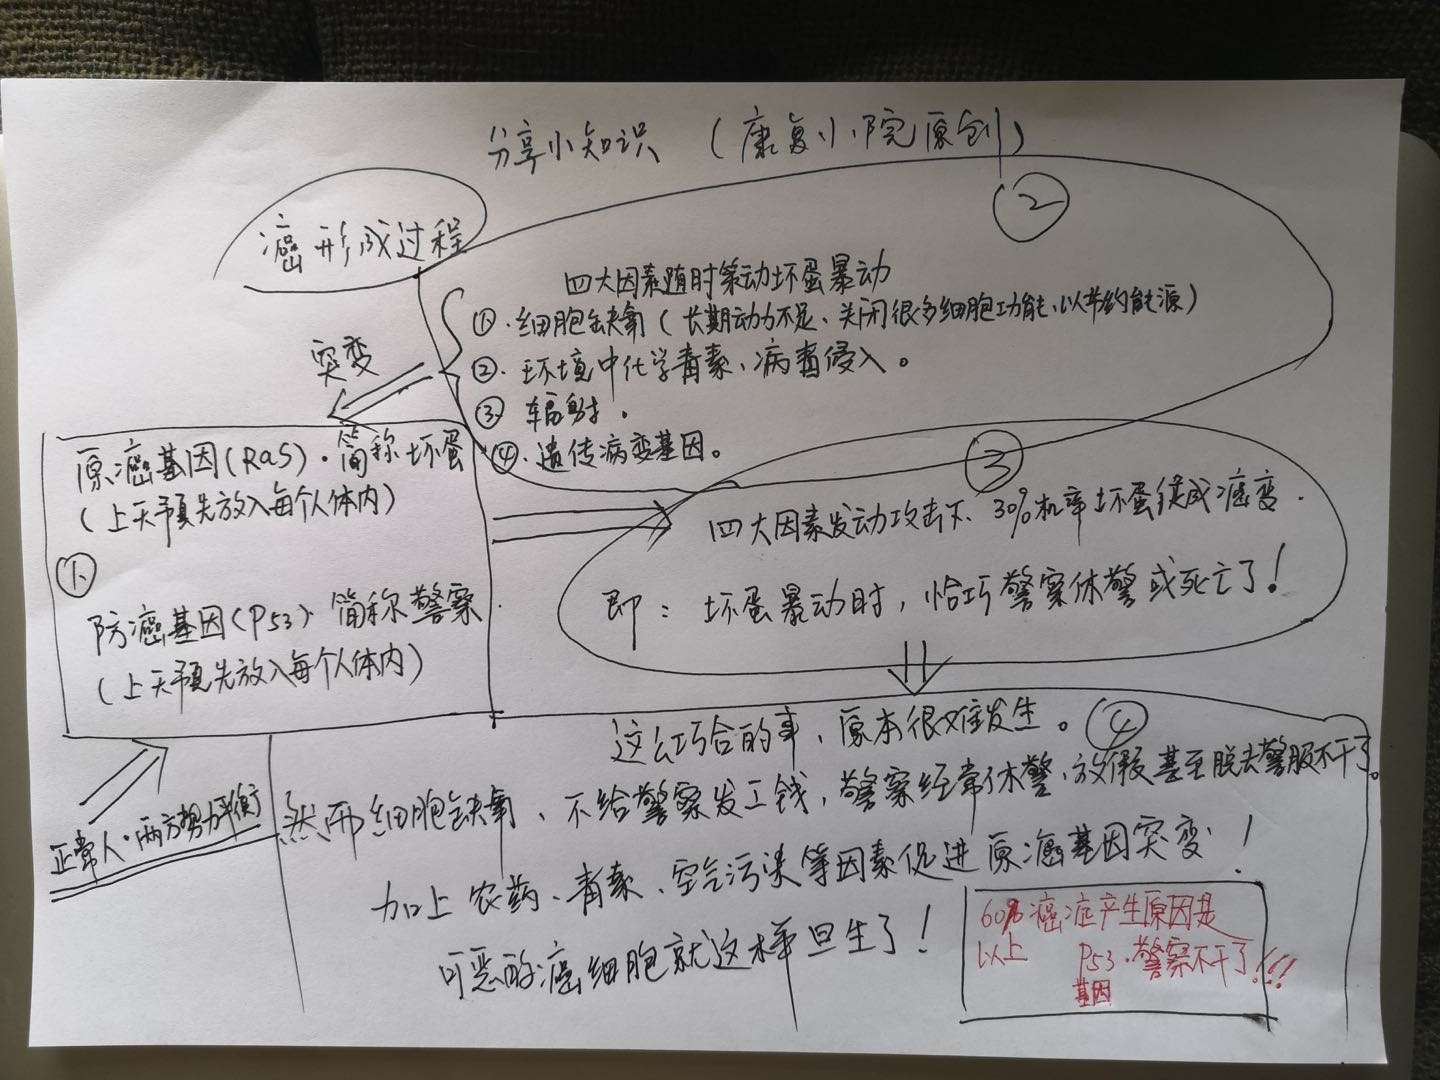 分享小知识 (康复小院原创)
癌形成过程
②
四大因素随时策动坏蛋暴动
①.细胞缺氧(长期动力不足、关闭很多细胞功能,以节约能源)
②.环境中化学毒素、病毒侵入。
③ 辐射.
④.遗传病变基因。
突变
原癌基因(RaS).简称坏蛋
(上天预先放入每个人体内)
①.
防癌基因(P53).简称警察.
(上天预先放入每个人体内)
③
四大因素发动攻击下、30%机率坏蛋变成癌变.
即: 坏蛋暴动时,恰巧警察休警或死亡了!
正常人.两方势力平衡
④
这么巧合的事,原本很难发生。
然而细胞缺氧、不给警察发工钱,警察经常休警、放假甚至脱去警服不干了。
加上农药、毒素、空气污染等因素促进原癌基因突变!
可恶的癌细胞就这样旦生了!
60%癌症产生原因是
以上 P53.警察不干了!!!
基因